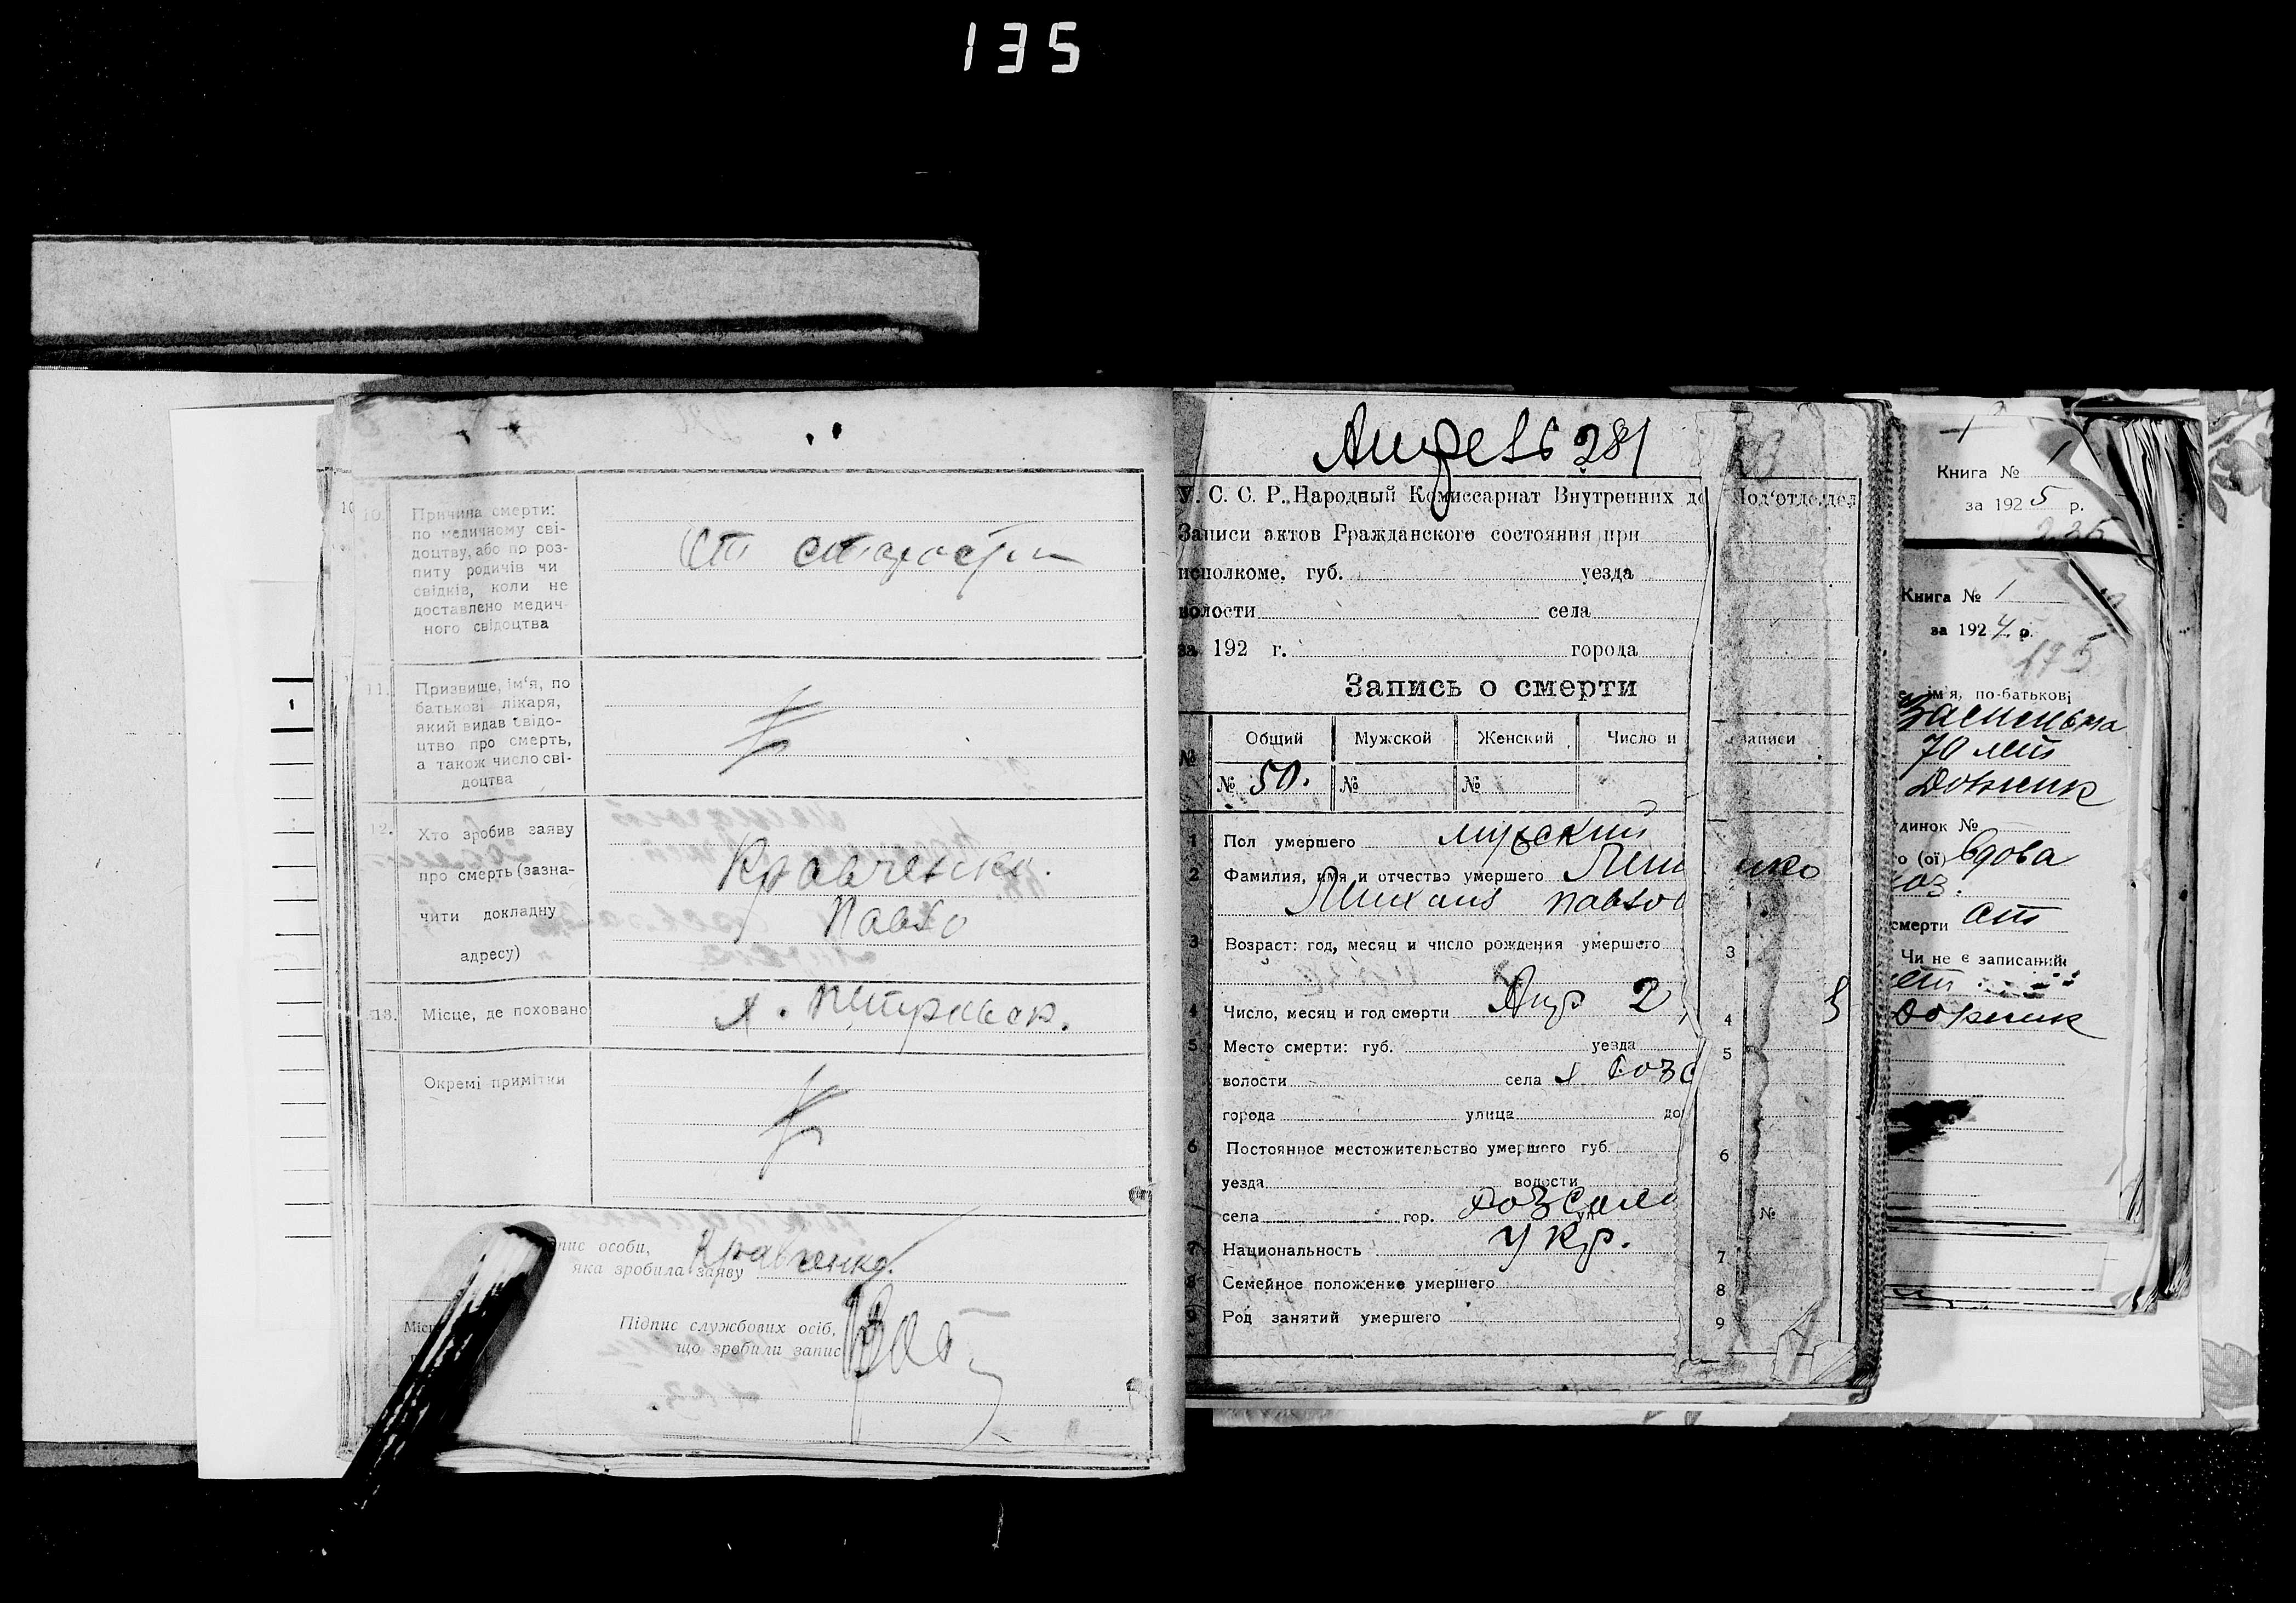 135
10.
Причина смерти:
по медичному сві-
доцтву, або по роз-
питу родичів чи
свідків, коли не
доставлено медич-
ного свідоцтва
От старости
11.
Призвище, ім'я, по
батькові лікаря,
який видав свідо-
цтво про смерть,
а також число сві-
доцтва
12.
Хто зробив заяву
про смерть (зазна-
чити докладну
адресу)
Кравченко
Павло
13.
Місце, де поховано
х.
Окремі примітки
пис особи,
яка зробила заяву
Кравченко
Місц
Підпис службових осіб,
що зробили запис
Апрель 281
У. С. С. Р. Народный Комиссариат Внутренних де Подотдел
Записи актов Гражданского состояния при
исполкоме, губ. уезда
волости села
за 192 г. города
Запись о смерти
№ Общий Мужской Женский Число и записи
№ 50. № №
1 Пол умершего мужский
2 Фамилия, имя и отчество умершего
Михаил Павло
3 Возраст: год, месяц и число рождения умершего 3
4 Число, месяц и год смерти Апр 2 4
5 Место смерти: губ. уезда 5
волости села х
города улица до
6 Постоянное местожительство умершего губ. 6
уезда волости
села гор. ул №
7 Национальность укр. 7
8 Семейное положение умершего 8
9 Род занятий умершего 9
Книга № 1
за 1925 р.
235
Книга № 1
за 1924 р.
195
ім'я, по-батькові
70 лет
динок №
о (ої) вдова
смерти от
Чи не є записаний